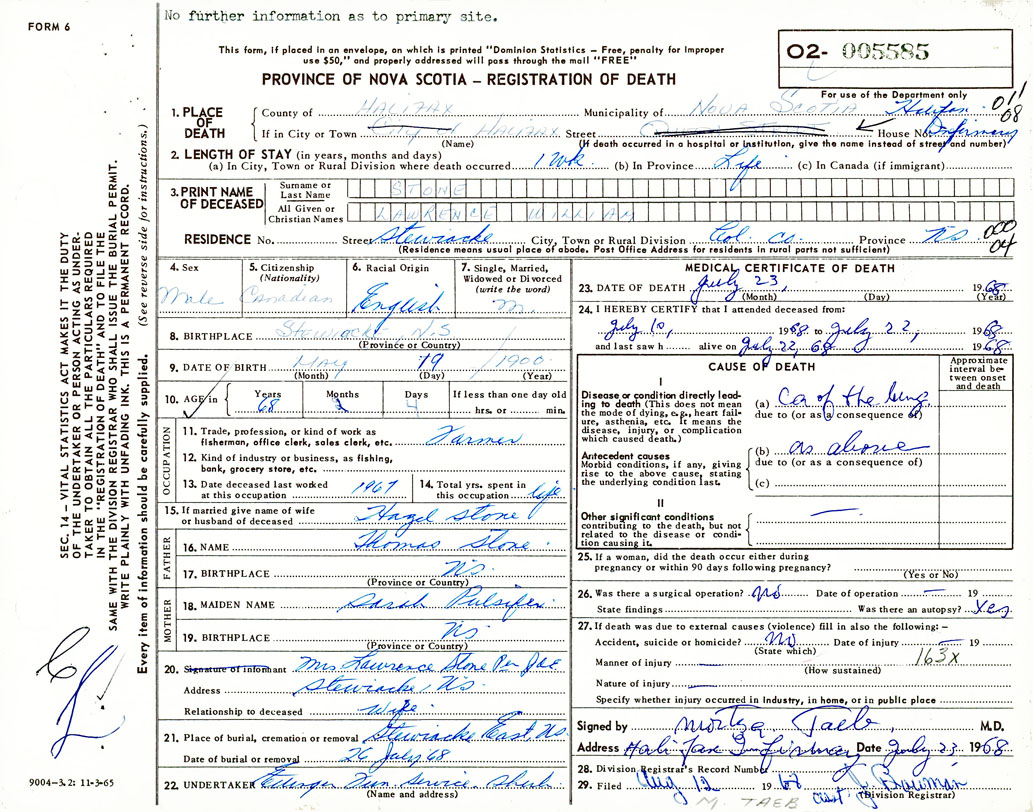 No further information as to primary site.
FORM 6
This form, if placed in an envelope, on which is printed "Dominion Statistics – Free, penalty for improper
use $50," and properly addressed will pass through the mail "FREE"
O2- 005585
PROVINCE OF NOVA SCOTIA – REGISTRATION OF DEATH
For use of the Department only
011
08
1. PLACE OF DEATH
County of HALIFAX Municipality of NOVA SCOTIA Halifax
If in City or Town City of HALIFAX Street House No. Infirmary
(Name) (If death occurred in a hospital or institution, give the name instead of street and number)
2. LENGTH OF STAY (in years, months and days)
(a) In City, Town or Rural Division where death occurred 1 wk. (b) In Province Life (c) In Canada (if immigrant)
3. PRINT NAME OF DECEASED
Surname or Last Name STONE
All Given or Christian Names LAWRENCE WILLIAM
RESIDENCE No. Street Stewiacke City, Town or Rural Division Col. Co. Province N.S. 000
04
(Residence means usual place of abode. Post Office Address for residents in rural parts not sufficient)
4. Sex Male
5. Citizenship (Nationality) Canadian
6. Racial Origin English
7. Single, Married, Widowed or Divorced (write the word) M.
8. BIRTHPLACE Stewiacke N.S
(Province or Country)
9. DATE OF BIRTH MAY 19 1900
(Month) (Day) (Year)
10. AGE in Years 68 Months 2 Days 4 If less than one day old
hrs. or min.
OCCUPATION
11. Trade, profession, or kind of work as fisherman, office clerk, sales clerk, etc. Farmer
12. Kind of industry or business, as fishing, bank, grocery store, etc.
13. Date deceased last worked at this occupation 1967
14. Total yrs. spent in this occupation life
15. If married give name of wife or husband of deceased Hazel Stone
FATHER
16. NAME Thomas Stone
17. BIRTHPLACE N.S.
(Province or Country)
MOTHER
18. MAIDEN NAME Sarah Pulsifer
19. BIRTHPLACE N.S.
(Province or Country)
20. Signature of informant Mrs Lawrence Stone Per
Address Stewiacke, N.S.
Relationship to deceased Wife
21. Place of burial, cremation or removal Stewiacke East, N.S.
Date of burial or removal 26 July '68
22. UNDERTAKER Ettinger Fun Service Shub
(Name and address)
MEDICAL CERTIFICATE OF DEATH
23. DATE OF DEATH July 23, 1968
(Month) (Day) (Year)
24. I HEREBY CERTIFY that I attended deceased from:
July 10, 1968 to July 22, 1968
and last saw h alive on July 22, 68 1968
CAUSE OF DEATH
Approximate interval between onset and death
I
Disease or condition directly leading to death (This does not mean the mode of dying, e.g., heart failure, asthenia, etc. It means the disease, injury, or complication which caused death.)
(a) Ca of the lung
due to (or as a consequence of)
Antecedent causes
Morbid conditions, if any, giving rise to the above cause, stating the underlying condition last.
(b) as above
due to (or as a consequence of)
(c)
II
Other significant conditions
contributing to the death, but not related to the disease or condition causing it.
25. If a woman, did the death occur either during pregnancy or within 90 days following pregnancy?
(Yes or No)
26. Was there a surgical operation? No Date of operation — 19
State findings Was there an autopsy? Yes
27. If death was due to external causes (violence) fill in also the following: –
Accident, suicide or homicide? No Date of injury — 19
(State which)
163X
Manner of injury
(How sustained)
Nature of injury
Specify whether injury occurred in industry, in home, or in public place
Signed by Morteza Taeb M.D.
Address Halifax Infirmary Date July 23 1968
28. Division Registrar's Record Number
29. Filed Aug 12 1968 Bowman
(Division Registrar)
M. TAEB
SEC. 14 – VITAL STATISTICS ACT MAKES IT THE DUTY
OF THE UNDERTAKER OR PERSON ACTING AS UNDER-
TAKER TO OBTAIN ALL THE PARTICULARS REQUIRED
IN THE "REGISTRATION OF DEATH" AND TO FILE THE
SAME WITH THE DIVISION REGISTRAR WHO SHALL ISSUE THE BURIAL PERMIT.
WRITE PLAINLY WITH UNFADING INK. THIS IS A PERMANENT RECORD.
Every item of information should be carefully supplied. (See reverse side for instructions.)
9004-3.2: 11-3-65